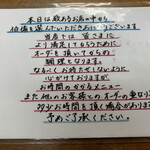 本日は数あるお店の中から
伯備を選んでいただきありがとうございます
当店では 皆さまに
より満足してもらうために
オーダーを頂いてからの
調理となります。
なるべくお待たせしないように
心がけておりますが
お時間のかかるメニュー
また他のお客様とのオーダーの重なりで
多少お時間を頂く場合があります
予めご了承ください。